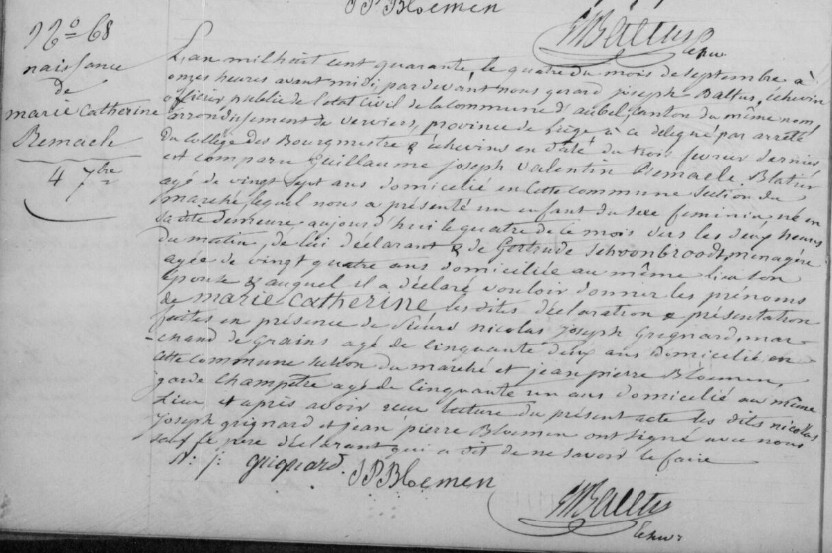 J P Bloemen
G J Baltus
Echev
N° 68
naissance
de
marie Catherine
Remacle
4 7bre
L'an mil huit cent quarante, le quatre du mois de septembre à
onze heures avant midi, par devant nous gerard joseph Baltus, échevin
officier public de l'etat civil de la commune d'aubel, canton du même nom
arrondissement de verviers, province de Liége, à ce délegué par arrêté
du College des Bourgmestre & echevins en date du trois fevrier dernier
est comparu Guillaume joseph valentin Remacle, Blatier
agé de vingt sept ans domicilié en cette commune section du
marché, lequel nous a présenté un enfant du sexe feminin, né en
sa dite demeure aujourd'hui le quatre de ce mois vers les deux heures
du matin, de lui déclarant & de Gertrude Schoonbroodt, menagère
agée de vingt quatre ans domiciliée au même lieu son
épouse & auquel il a déclaré vouloir donner les prénoms
de marie Catherine les dites déclaration & présentation
faites en présence de Sieurs nicolas Joseph Grignard, mar-
-chand de grains agé de cinquante deux ans domicilié en
cette commune section du marché et jean pierre Bloemen,
garde Champêtre agé de cinquante un ans domicilié au même
Lieu et après avoir reçu lecture du présent acte les dits nicolas
Joseph grignard et jean pierre Bloemen ont signé avec nous
sauf le père déclarant qui a dit de ne savoir le faire
N: j: grignard. J P Bloemen
G J Baltus
Echev